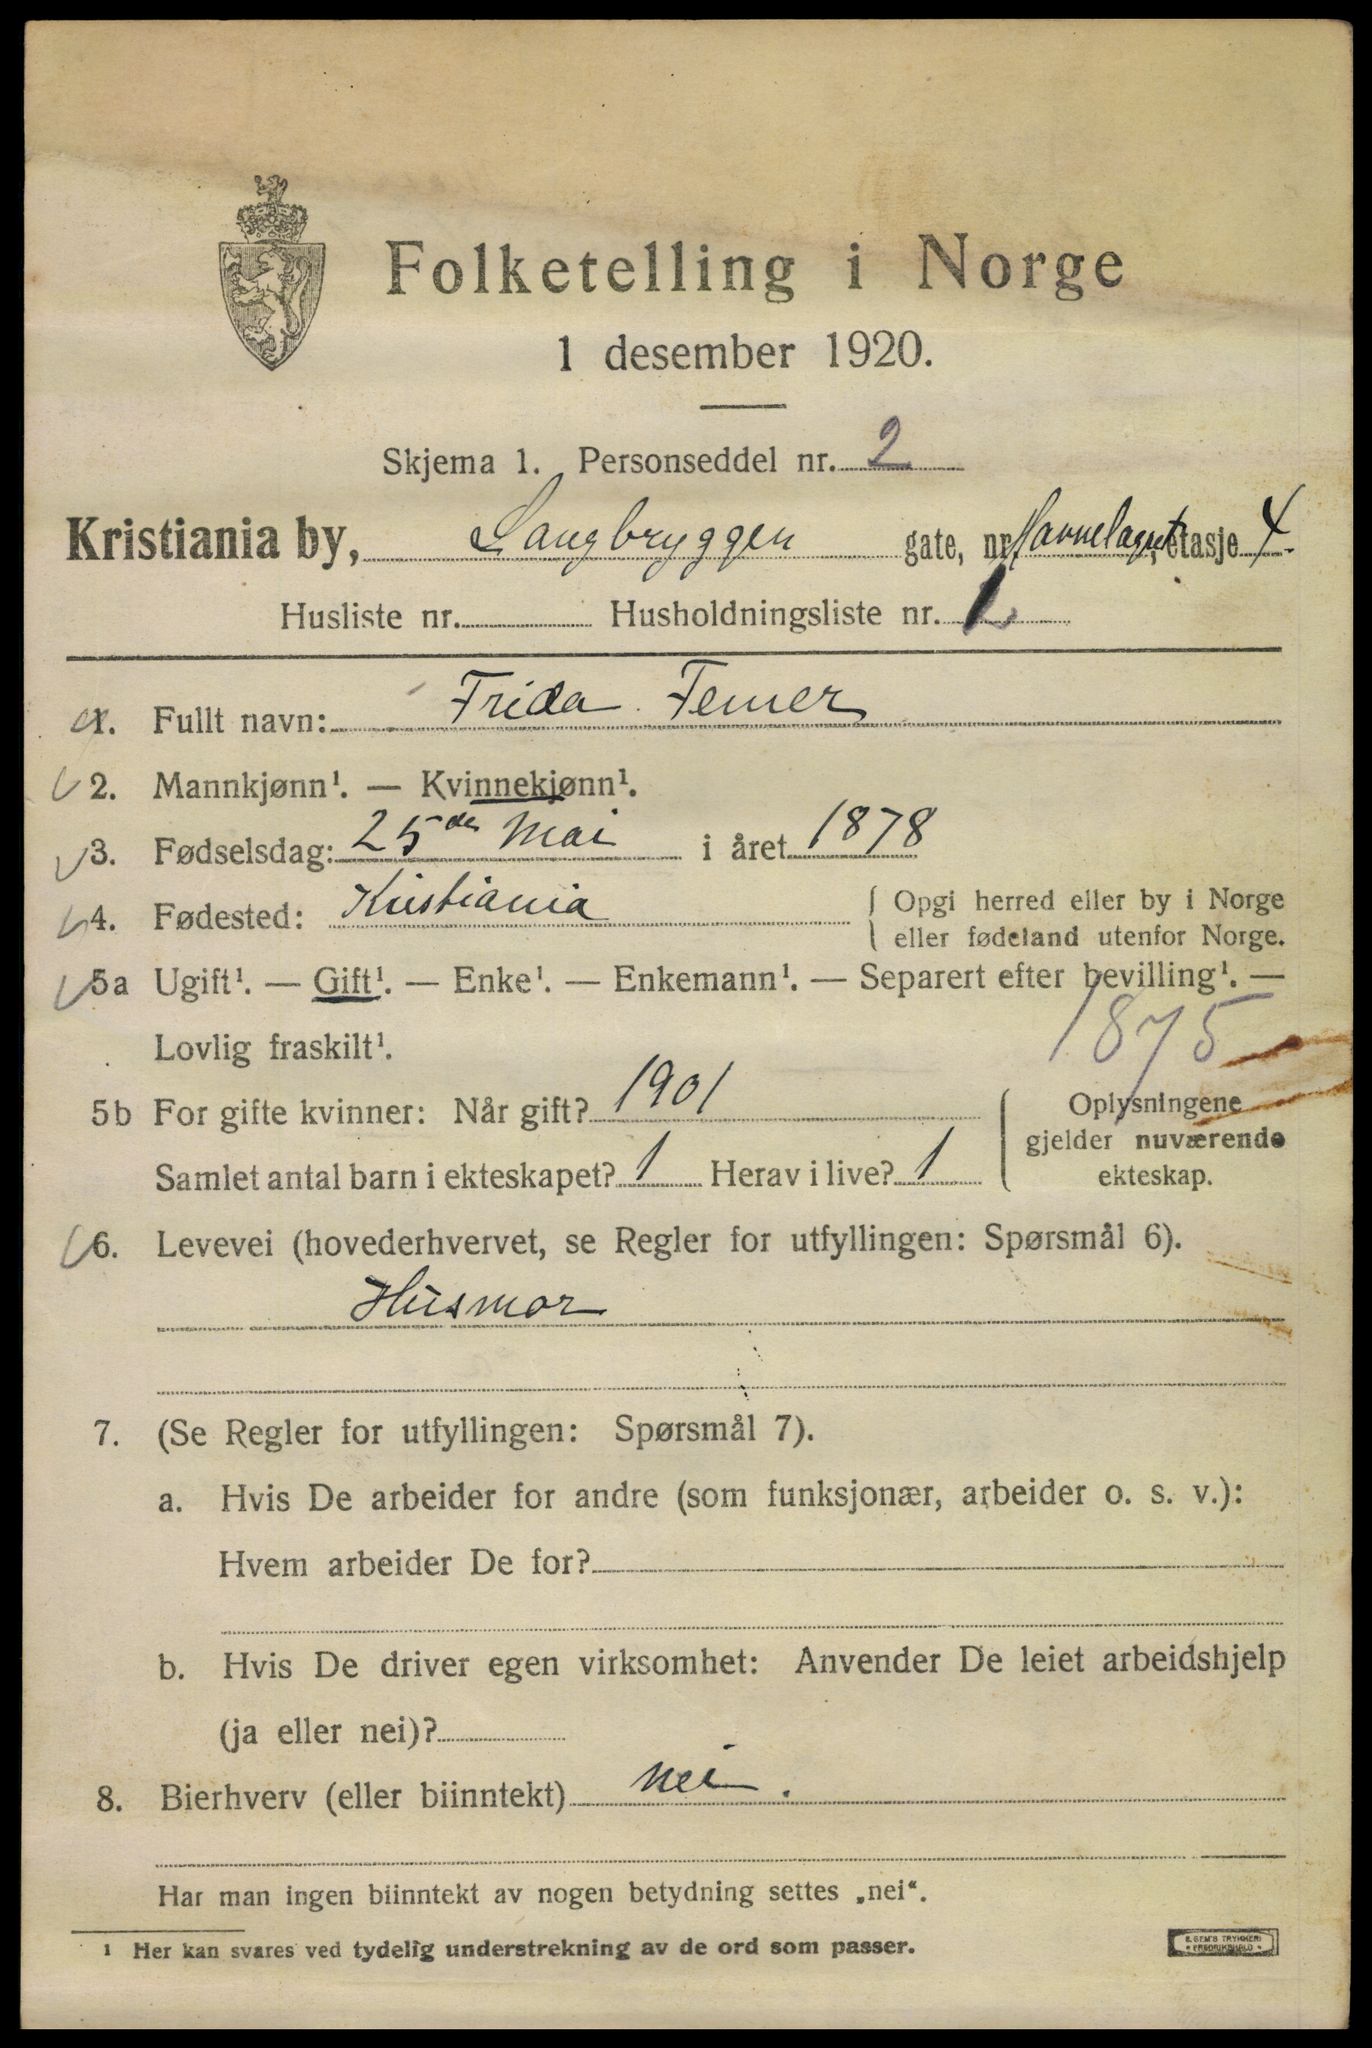 Folketelling i Norge
1 desember 1920.
Skjema 1. Personseddel nr. 2
Kristiania by, Langbryggen gate, nr. Havnelageret, etasje 4.
Husliste nr. Husholdningsliste nr. 1
1. Fullt navn: Frida Femer
2. Mannkjønn¹. — Kvinnekjønn¹.
3. Fødselsdag: 25de Mai i året 1878
4. Fødested: Kristiania { Opgi herred eller by i Norge
eller fødeland utenfor Norge.
5a Ugift¹. — Gift¹. — Enke¹. — Enkemann¹. — Separert efter bevilling¹. —
Lovlig fraskilt¹.
1875
5b For gifte kvinner: Når gift? 1901
Samlet antal barn i ekteskapet? 1 Herav i live? 1
{ Oplysningene
gjelder nuværende
ekteskap.
6. Levevei (hovederhvervet, se Regler for utfyllingen: Spørsmål 6).
Husmor
7. (Se Regler for utfyllingen: Spørsmål 7).
a. Hvis De arbeider for andre (som funksjonær, arbeider o. s. v.):
Hvem arbeider De for?
b. Hvis De driver egen virksomhet: Anvender De leiet arbeidshjelp
(ja eller nei)?
8. Bierhverv (eller biinntekt) nei.
Har man ingen biinntekt av nogen betydning settes „nei“.
¹ Her kan svares ved tydelig understrekning av de ord som passer.
E. SEM'S TRYKKERI
* FREDRIKSHALD *